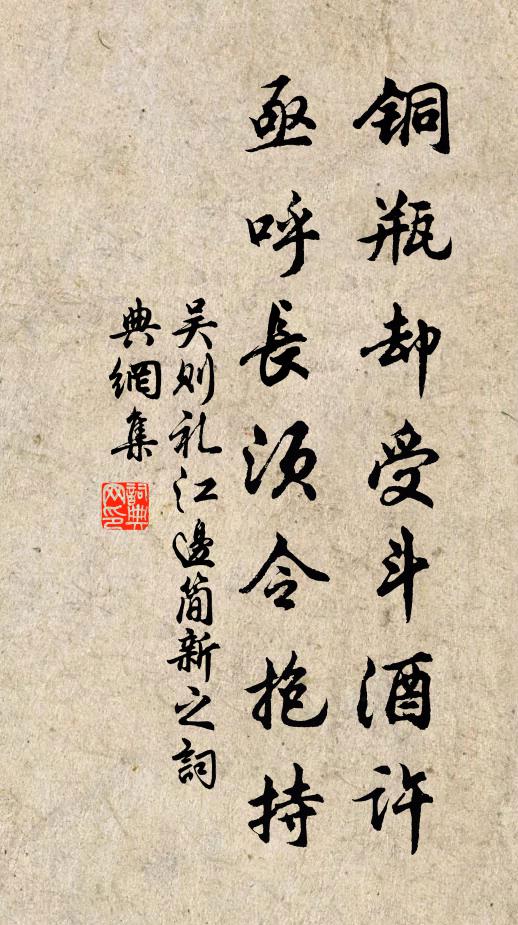 铜瓶却受斗酒许
亟呼長须令抱持
吴则礼江邊简新之詞
典網集
詞典
网印